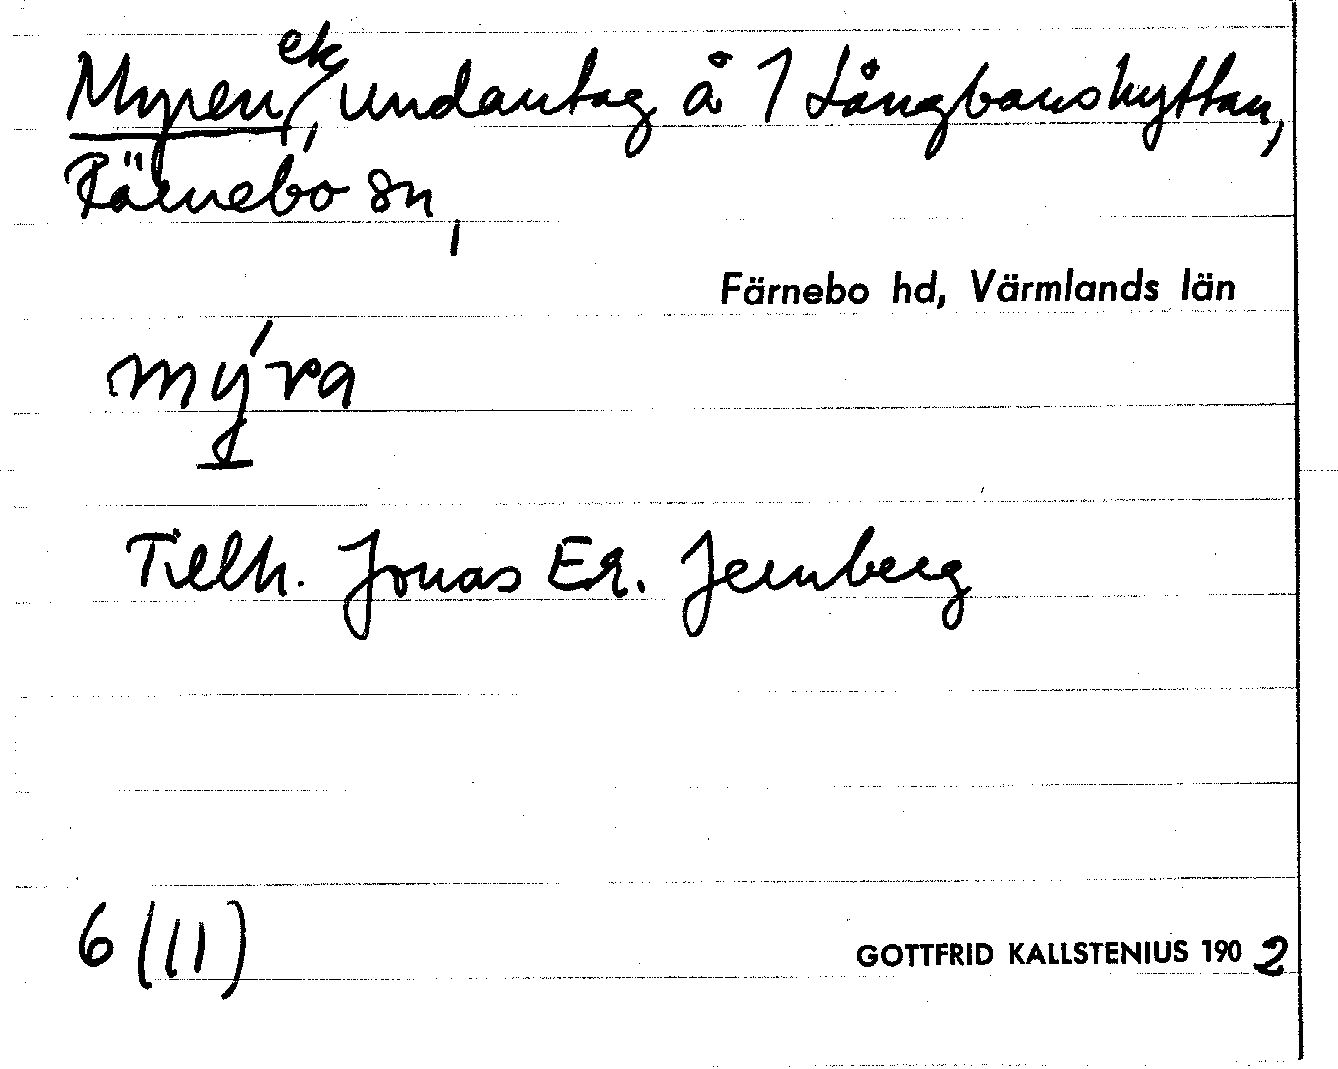 Myren, ek, undantag å 1 Långbanshyttan,
Färnebo sn,
Färnebo hd, Värmlands län
mýra
Tillh. Jonas Er. Jernberg
6 (11)
GOTTFRID KALLSTENIUS 1902